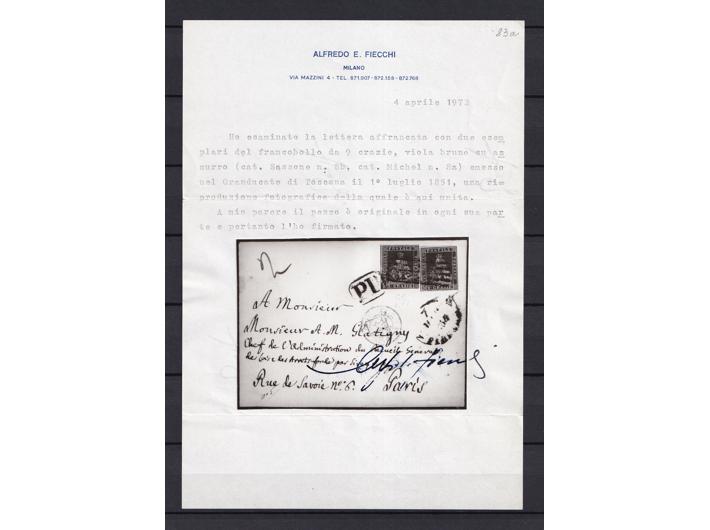 83a
ALFREDO E. FIECCHI
MILANO
VIA MAZZINI 4 - TEL. 871.907-872.159-872.768
4 aprile 1973
Ho esaminato la lettera affrancata con due esem
plari del francobollo da 9 crazie, viola bruno su az
zurro (cat. Sassone n. 8b, cat. Michel n. 8a) emesso
nel Granducato di Toscana il 1° luglio 1851, una ri=
produzione fotografica della quale è qui unita.
A mio parere il pezzo è originale in ogni sua par
te e pertanto l'ho firmato.
PD
A Monsieur
Monsieur A. M. Glatigny
Chef de l'Administration du Recueil Général
des Lois
Rue de Savoie n° 6. Paris